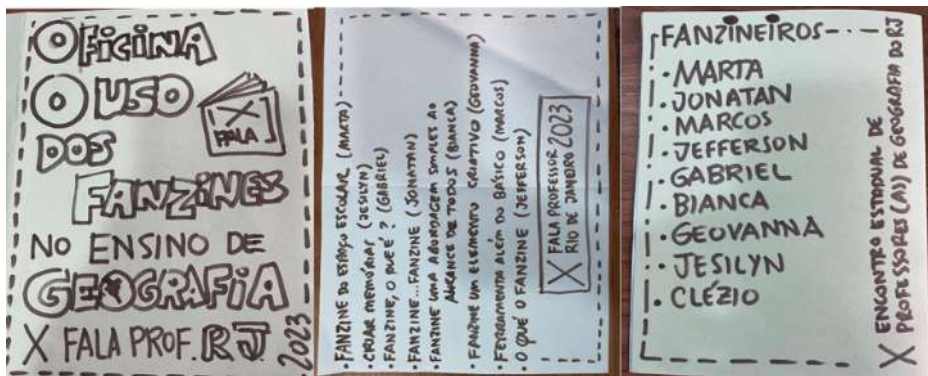 OFICINA
O USO
DOS
X
FALA
FANZINES
NO ENSINO DE
GEOGRAFIA
X FALA PROF. RJ.
2023
• FANZINE DO ESPAÇO ESCOLAR (MARTA)
• CRIAR MEMÓRIAS (JESILYN)
• FANZINE, O QUE É? (GABRIEL)
FANZINE...FANZINE (JONATAN)
• FANZINE UMA ABORDAGEM SIMPLES AO
ALCANCE DE TODOS (BIANCA)
• FANZINE UM ELEMENTO CRIATIVO (GEOVANNA)
• FERRAMENTA ALÉM DO BÁSICO (MARCOS)
• O QUÉ O FANZINE (JEFFERSON)
X FALA PROFESSOR 2023
RIO DE JANEIRO
FANZINEIROS
• MARTA
• JONATAN
• MARCOS
• JEFFERSON
• GABRIEL
• BIANCA
• GEOVANNA
• JESILYN
• CLÉZIO
X ENCONTRO ESTADUAL DE
PROFESSORES(AS) DE GEOGRAFIA DO RJ